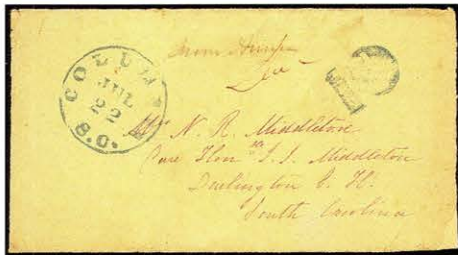 COLUM
JUL
22
S.C.
N. R. Middleton
Care Hon J. J. Middleton
Darlington C. H.
South Carolina